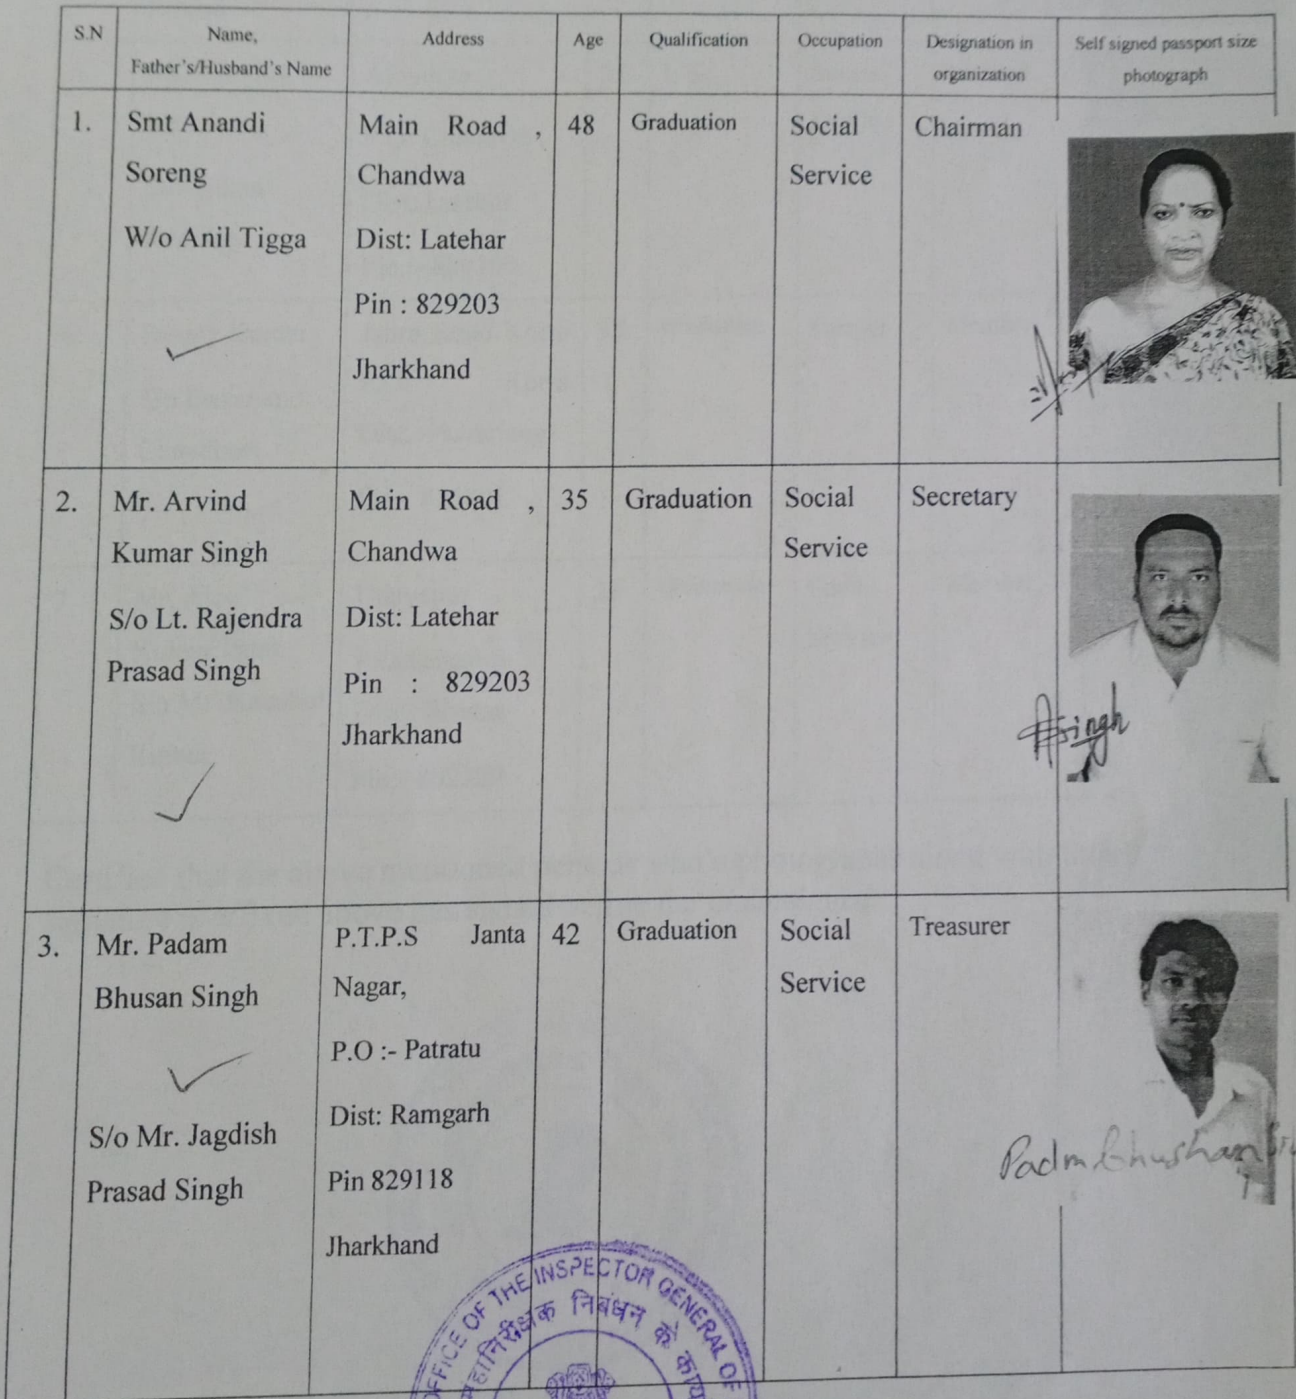 S.N
Name,
Father's/Husband's Name
Address
Age
Qualification
Occupation
Designation in
organization
Self signed passport size
photograph
1.
Smt Anandi
Soreng
W/o Anil Tigga
Main Road ,
Chandwa
Dist: Latehar
Pin : 829203
Jharkhand
48
Graduation
Social
Service
Chairman
2.
Mr. Arvind
Kumar Singh
S/o Lt. Rajendra
Prasad Singh
Main Road ,
Chandwa
Dist: Latehar
Pin : 829203
Jharkhand
35
Graduation
Social
Service
Secretary
Singh
3.
Mr. Padam
Bhusan Singh
S/o Mr. Jagdish
Prasad Singh
P.T.P.S Janta
Nagar,
P.O :- Patratu
Dist: Ramgarh
Pin 829118
Jharkhand
42
Graduation
Social
Service
Treasurer
Padm Bhushan
OFFICE OF THE INSPECTOR GENERAL OF
महानिरीक्षक निबंधन के